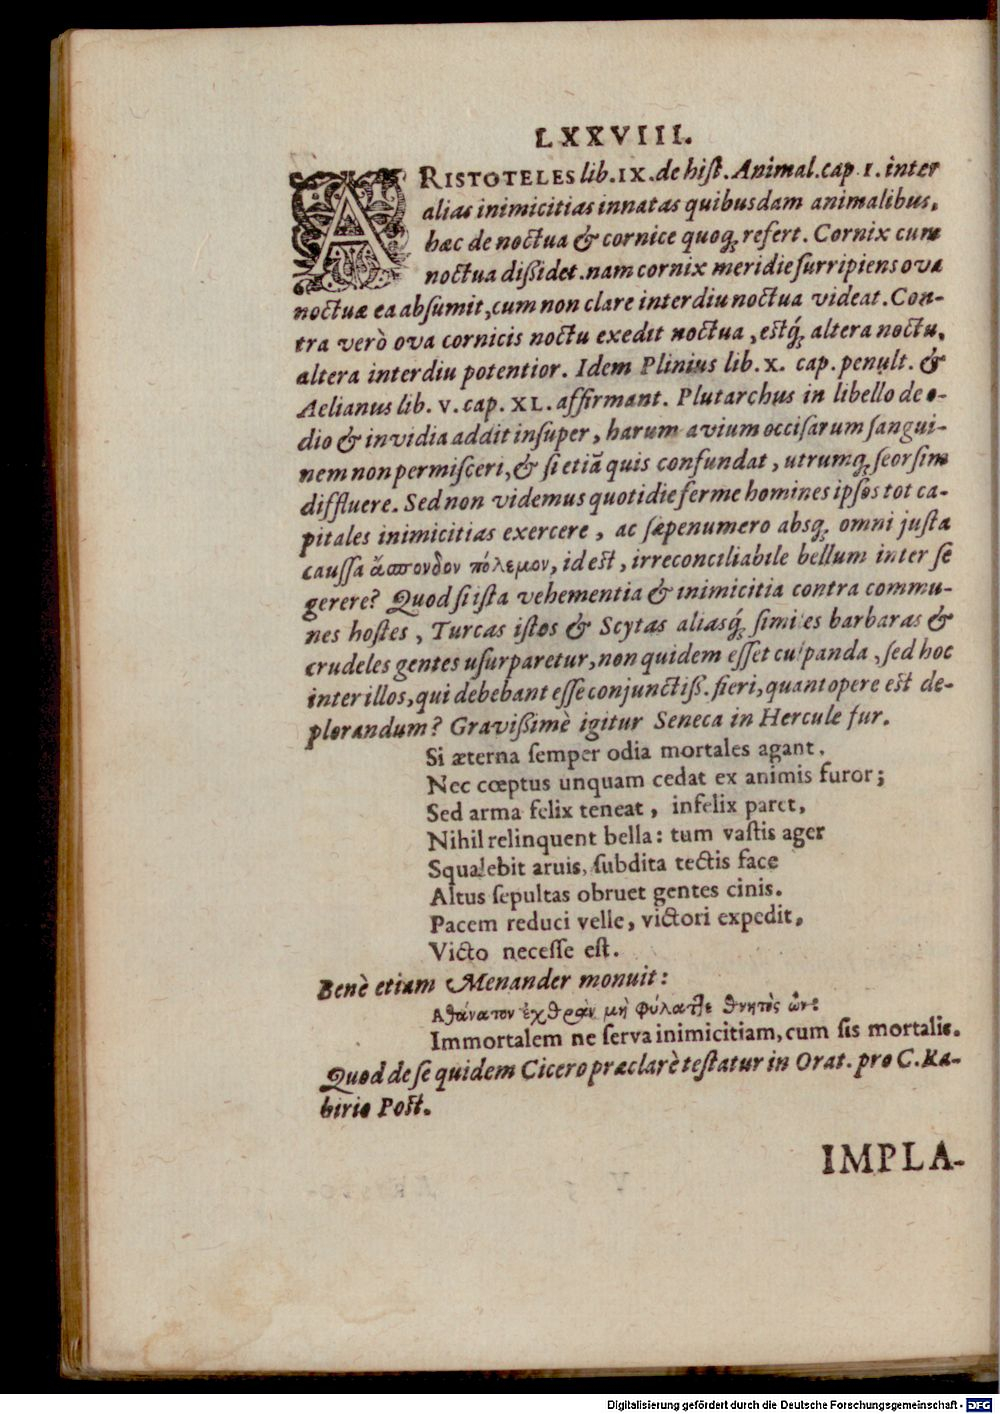 LXXVIII.
ARISTOTELES lib. IX. de hist. Animal. cap. 1. inter
alias inimicitias innatas quibusdam animalibus,
hæc de noctua & cornice quoq; refert. Cornix cum
noctua dißidet. nam cornix meridie surripiens ova
noctuæ ea absumit, cum non clare interdiu noctua videat. Con-
tra verò ova cornicis noctu exedit noctua, estq́; altera noctu,
altera interdiu potentior. Idem Plinius lib. X. cap. penult. &
Aelianus lib. V. cap. XL. affirmant. Plutarchus in libello de o-
dio & invidia addit insuper, harum avium occisarum sangui-
nem non permisceri, & si etiã quis confundat, utrumq; seorsim
diffluere. Sed non videmus quotidie ferme homines ipsos tot ca-
pitales inimicitias exercere, ac sæpenumero absq; omni justa
caussa ἄσπονδον πόλεμον, id est, irreconciliabile bellum inter se
gerere? Quod si ista vehementia & inimicitia contra commu-
nes hostes, Turcas istos & Scytas aliasq́; similes barbaras &
crudeles gentes usurparetur, non quidem esset culpanda, sed hoc
inter illos, qui debebant esse conjunctiß. fieri, quantopere est de-
plorandum? Gravißimè igitur Seneca in Hercule fur.
Si æterna semper odia mortales agant,
Nec cœptus unquam cedat ex animis furor;
Sed arma felix teneat, infelix paret,
Nihil relinquent bella: tum vastis ager
Squalebit aruis, subdita tectis face
Altus sepultas obruet gentes cinis.
Pacem reduci velle, victori expedit,
Victo necesse est.
Benè etiam Menander monuit:
Αθάνατον ἐχθρὰν μὴ φύλαττε θνητὸς ὤν:
Immortalem ne serva inimicitiam, cum sis mortalis.
Quod de se quidem Cicero præclarè testatur in Orat. pro C. Ra-
birio Post.
IMPLA-
Digitalisierung gefördert durch die Deutsche Forschungsgemeinschaft - DFG